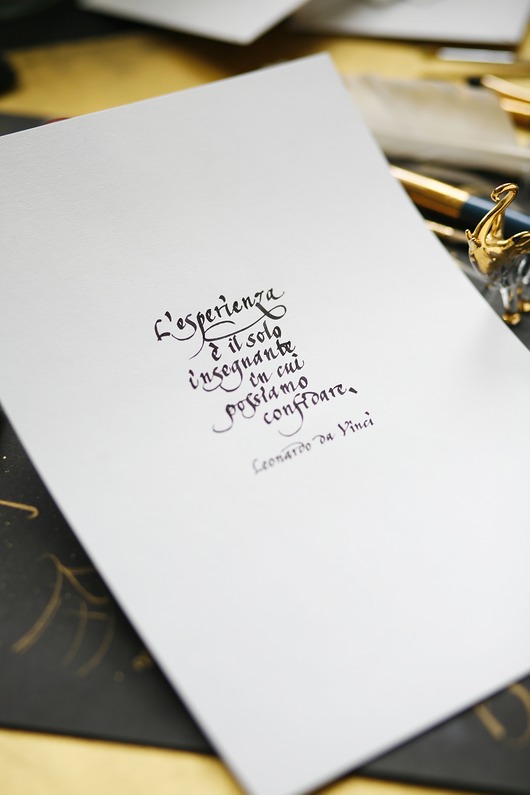 L'esperienza
è il solo
insegnante
in cui
possiamo
confidare.
Leonardo da Vinci